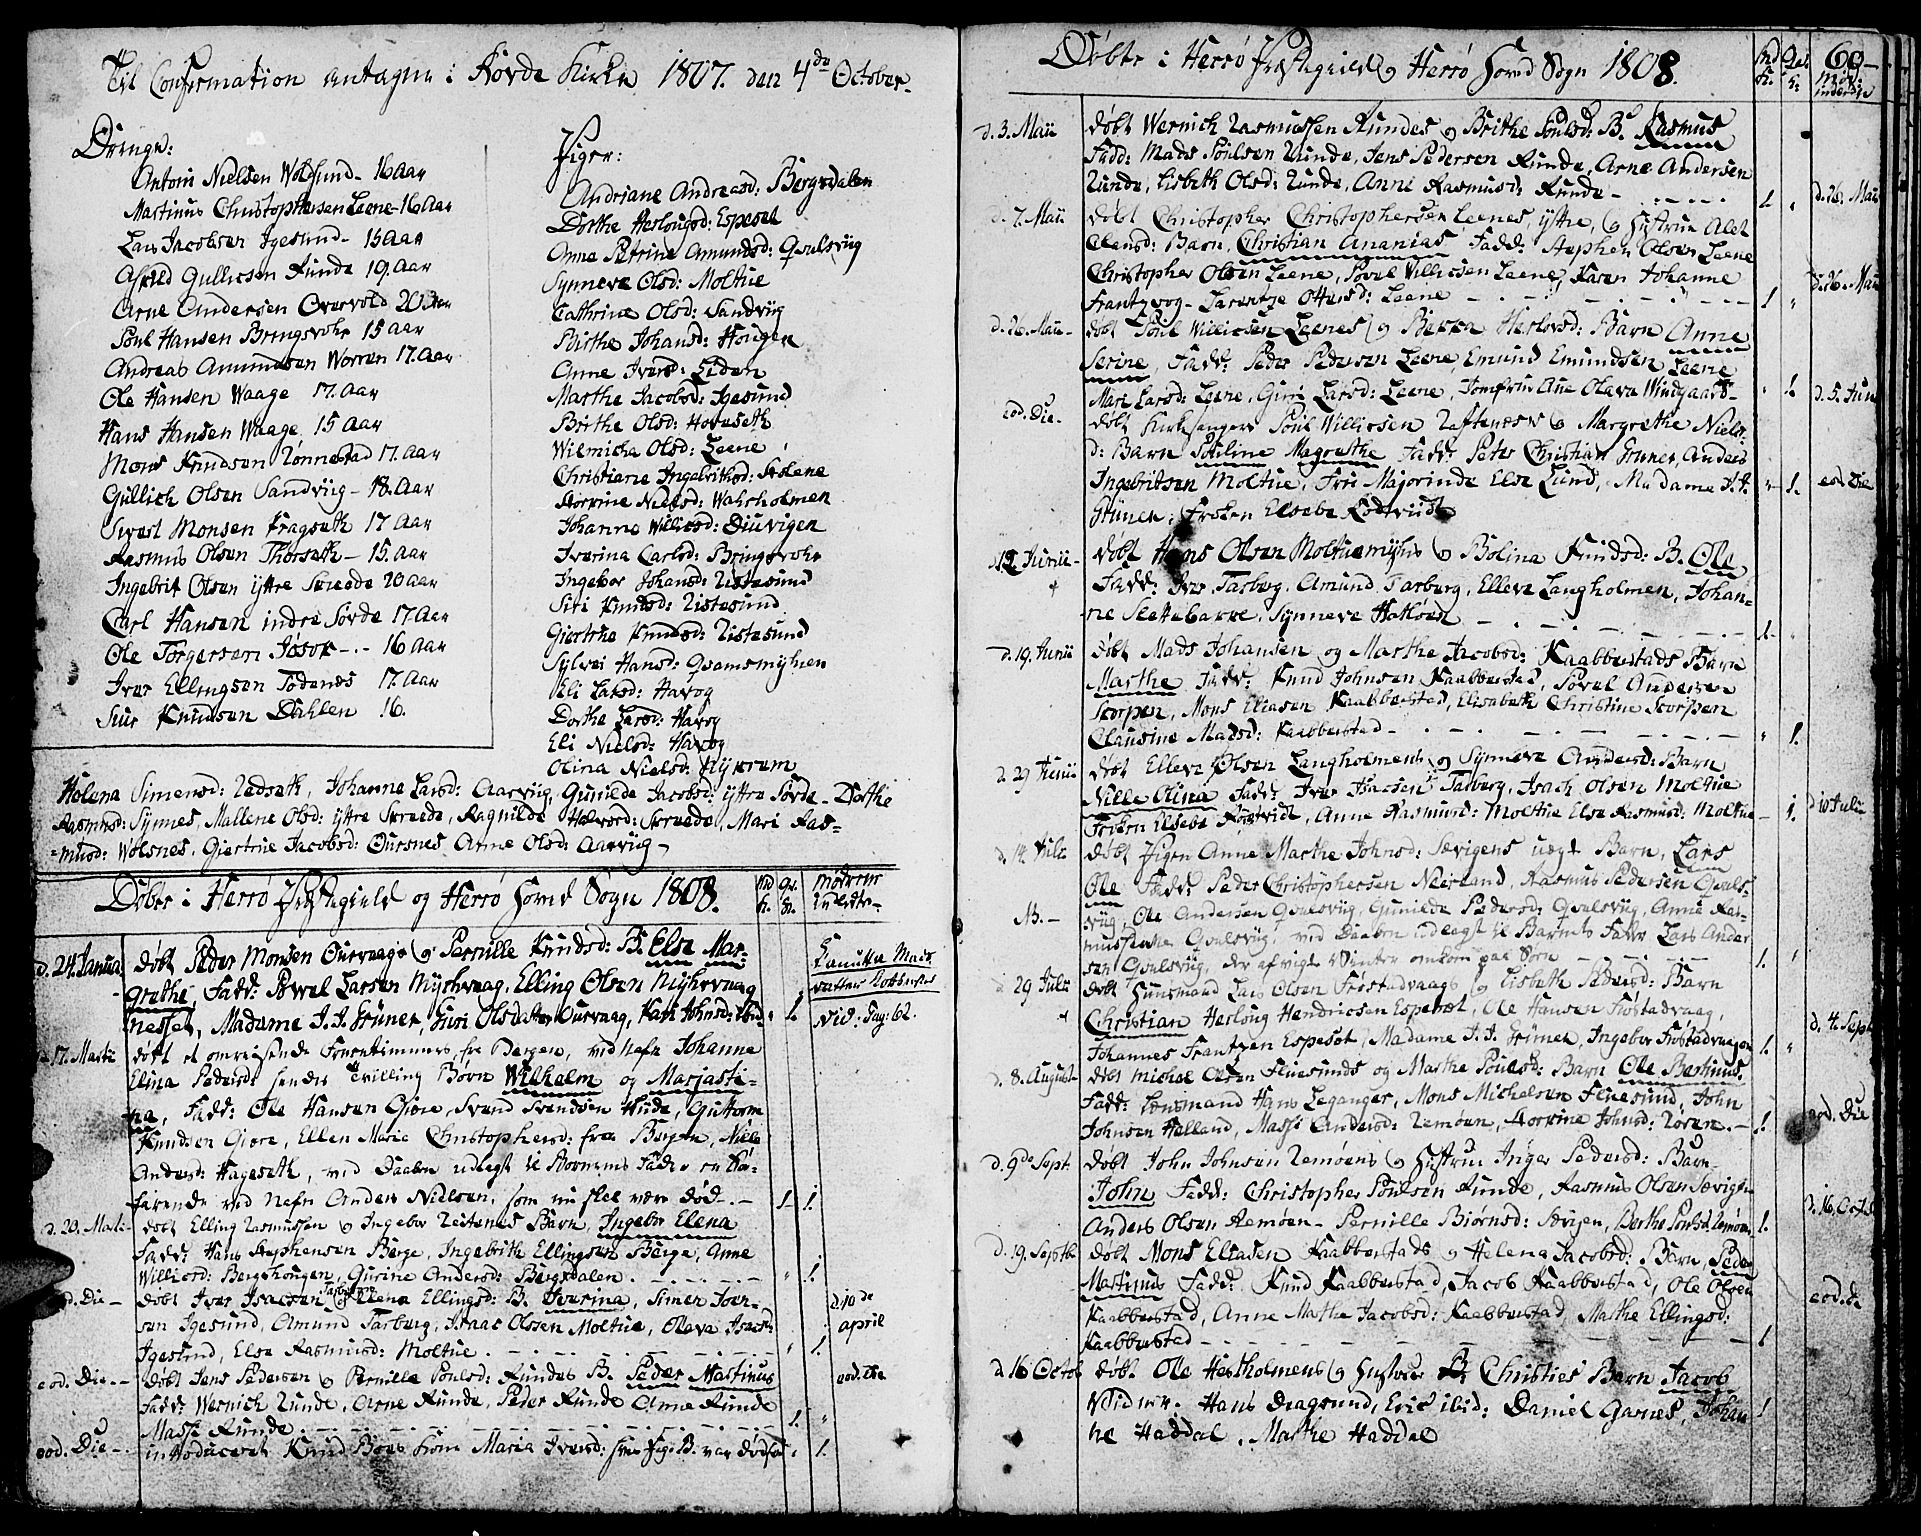 Til Confirmation antagne i Hovde Kirke 1807. den 4de October.
Drenge:
Antoni Nielsen Woldsund - 16 Aar
Martinus Christophersen Leene - 16 Aar
Lars Jacobsen Igesund - 15 Aar
Gullicsen Runde 19. Aar
Arne Andersen Overvold 20. Aar
Poul Hansen Bringsvohr 15 Aar
Andreas Amundsen Worren 17. Aar
Ole Hansen Waage 17. Aar
Hans Hansen Waage 15 Aar
Mons Knudsen Rønnestad 17. Aar
Gullich Olsen Sandviig - 18. Aar
Sivert Monsen Kragseth 17 Aar
Rasmus Olsen Thorseth - 15. Aar
Ingebrit Olsen ÿttre Skreede 20 Aar
Carl Hansen indre Sørde 17. Aar
Ole Torgersen Jøsok - 16 Aar
Iver Ellingsen Tødenes 17. Aar
Siur Knudsen Dahlen 16.
Piger:
Andriane Andreasd: Bergsdalen
Dorthe Herlougsd: Espeset
Anne Petrine Amundsd: Qvalsviig
Synneve Olsd: Moltue
Cathrine Olsd: Sandviig
Birthe Johansd: Hougen
Anne Iversd: Eiden
Marthe Jacobsd: Igesund
Birthe Olsd: Hovaseth
Wilmicha Olsd: Leene
Christiane Ingebrithsd: Stolene
Nielsd: Wahrholmen
Johanne Willicsd: Diuvigen
Iverina Carlsd: Bringsvohr
Ingebor Johansd: Ristesund
Siri Knudsd: Ristesund
Giertrue Knudsd: Ristesund
Sylvei Hansd: Qvamsmyhren
Eli Larsd: Havog
Dorthe Larsd: Havog
Eli Nielsd: Havog
Olina Nielsd: Myhrum
Helena Simensd: Rødseth, Johanne Larsd: Aarviig, Gunilde Jacobsd: ÿttre Sørde - Dorthe
Rasmusd: Synnes, Mallene Olsd: ÿttre Skreede, Ragnilde Halvord: Skreede, Mari Ras=
=musd: Wolsnes, Giertrue Jacobsd: Oursnes Arne Olsd: Aarviig -
Døbte i Herrø Præstegield og Herrø Hoved Sogn 1808.
d. 24. Janua. døbt Peder Monsen Ourvaags og Pernille Knudsd: B. Else Mar=
grethe, Fadd: Povel Larsen Myrhvaag, Elling Olsen Myhrvaag
nesset, Madame J. J. Grüner, Guri Olsdatter Ourvaag, Kari Johnsd: 1.
vid: Pag: 62.
17. Martii døbt et omreisende Fruentimmers, fra Bergen, ved Nafn Johanne
Elina Pedersd: hendes Tvilling Børn Wilhelm og Marjasti=
na, Fadd: Ole Hansen Giøre, Svend Svendsen Hide, Guttorm
Knudsen Giøre, Ellen Marie Christophersd: fra Bergen, Niels
Anders: Hageseth, ved Daaben udlagt til Børnenes Fader en Søe=
farende ved Nafn Anders Nielsen, som nu skal være død. - 1. 1.
d. 20. Martii - døbt Elling Rasmussen og Ingebor Reitenes Barn, Ingebor Elena
Fadd: Hans Stephensen Berge, Ingebrith Ellingsen Berge, Anne
Willicsd: Bergshougen, Gurine Andersd: Bergsdalen. 1.
eod. Die - døbt Iver Isacsen Tarberg og Elena Ellingsd: B. Iverina, Simen Iver=
sen Igesund, Amund Tarberg, Isaac Olsen Moltue, Olava Isacsd:
Igesund, Else Rasmusd: Moltue. 1.
d. 10de april
eod. Die - døbt Jens Pedersen og Pernille Poulsd: Rundes B. Peder Martinus
Fadd: Wernich Runde, Arne Runde, Peder Runde Anne Runde
Massi Runde 1.
eod. Die
eod. Die - introduceret Knud Boes Kone Maria Iversd: hvis Pige B. var dødfød 1.
Døbte i Herrø Præstegield og Herrø Hoved Sogn 1808.
69
d. 3. Maii døbt Wernich Rasmussen Rundes og Brithe Poulsd: B. Rasmus
Fadd: Mads Poulsen Runde, Jens Pedersen Runde, Arne Andersen
Runde, Lisbeth Olsd: Runde, Anne Rasmusd: Runde - 1. d. 26. Maii
d. 7. Maii døbt Christopher Christophersen Leenes, ÿttre, og Hustrue Alet
Clausd: Barn, Christian Ananias, Fadd: Stephen Olsen Leene
Christopher Olsen Leene, Poul Willicsen Leene, Karen Johanne
Frantzvog - Larentze Ottersd: Leene 1 d. 26. Maii
d. 26. Maii - døbt Poul Willicsen Leenes og Berta Herlovsd: Barn Anne
Serine, Fadd: Peder Pedersen Leene, Emund Emundsen Leene
Mari Larsd: Leene, Guri Larsd: Leene, Jomfrue Ane Olava Windgaard - 1. d. 5. Juni
eod. Die - døbt Kirkesanger Poul Willicsen Ræftenes og Margrethe Niels=
d: Barn Pouline Magrethe Fadd: Peter Christian Gruner, Anders
Ingebritsen Moltue, Frue Majorinde Else Lund, Madame J. J.
Grüner, Frøken Elsebe Rodtvidt 1. eod Die
12. Junii - døbt Hans Olsen Moltuemyhr og Bolina Knudsd: B. Ole
Fadd: Iver Tarberg, Amund Tarberg, Ellev Langholmen, Johan=
ne Slettebakke, Synneve Hatløen 1.
d. 19. Junii døbt Mads Johansen og Marthe Jacobsd: Kaabbestads Barn
Marthe Fadd: Knud Johnsen Kaabbestad, Povel Andersen
Scorpen, Mons Eliasen Kaabbestad, Elisabeth Christine Scorpen
Clausine Madsd: Kaabbestad - 1.
d. 29 Junii døbt Ellev Olsen Langholmens og Synneva Andersd: Barn
Nille Olina Fadd: Iver Isacsen Tarberg, Isach Olsen Moltue
Frøken Elsebe Rodtvidt, Anne Rasmusd: Moltue Else Rasmusd: Moltue - 1. d 10 Julii
d. 14. Julii døbt Pigen Anne Marthe Johnsd: Sævigens uægte Barn, Lars
Ole Fadd: Peder Christophersen Nærland, Rasmus Pedersen Qvals=
viig, Ole Andersen Qvalsviig, Gunilde Pedersd: Qvalsviig, Anne Ras=
NB. - Qvalsviig, ved Daaben udlagt til Barnets Fader Lars Ander
sen Qvalsviig, der afvigte Vinter omkom paa Søen 1.
29 Julii døbt Huusmand Lars Olsen Frøstadvaags og Lisbeth Pedersd: Barn
Christian Herloug Hendricsen Espeset, Ole Hansen Frøstadvaag,
Johannes Frantzen Espeset, Madame J. J. Grüner, Ingebor Frøstadvaagen 1. d. 4. Sept
d. 8. August døbt Michel Olsen Fluesunds og Marthe Poulsd: Barn Ole Bertinus.
Fadd: Lensmand Hans Leganger, Mons Michelsen Fluesund, John
Johnsen Hølland, Massi Andersd: Remøen, Johnsd: - 1. eod. Die
d. 9de Sept. døbt John Johnsen Remøens og Hustrue Inger Pedersd: Barn
John Fadd: Christopher Poulsen Runde, Rasmus Olsen Sævigen
Anders Olsen Remøen - Pernille Biørnsd: Berthe Poulsd: Remøen 1. d. 16. Octob
d. 19. Septbr døbt Mons Eliasen Kaabbestads og Helena Jacobsd: Barn, Peder
Martinus Fadd: Knud Kaabbestad, Jacob Kaabbestad, Ole Olsen
Kaabbestad, Anne Marthe Jacobsd: Kaabbestad, Marthe Ellingsd:
Kaabbestad 1 eod. die
d 16 Octob døbt Ole Hestholmens og Hustrue Christies Barn Jacob
Hans Dragsund, Eric ibid: Daniel Garnes, Johan 1
ne Haddal, Marthe Haddal